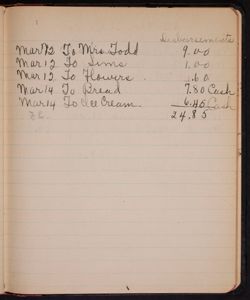 Disbursements
Mar 12 To Mrs Todd 9.00
Mar 12 To Sims 1.00
Mar 13 To Flowers .60
Mar 14 To Bread 7.80 Cash
Mar 14 To Ice Cream 6.45 Cash
24.85